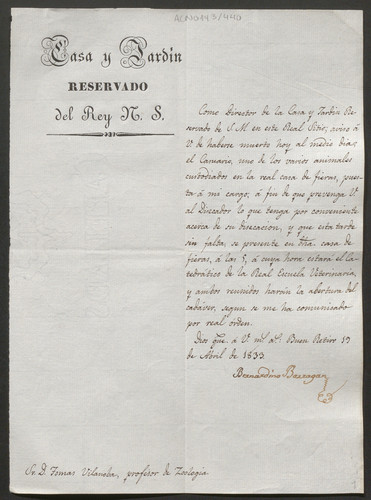 ACN0143/440
Casa y Jardin
RESERVADO
del Rey N. S.
Como Director de la Casa y Jardin Re-
servado de S.M. en este Real Sitio; aviso á
V. de haberse muerto hoy al medio dia,
el uno de los varios animales
custodiados en la real casa de fieras, pues-
ta á mi cargo; á fin de que prevenga V.
al Disecador lo que tenga por conveniente
acerca de su disecacion, y que esta tarde
sin falta, se presente en dha. casa de
fieras, á las 5, á cuya hora estará el Ca-
tedrático de la Real Escuela Veterinaria,
y ambos reunidos harán la abertura del
cadáver, segun se me ha comunicado
por real orden.
Dios gue. á V. ms. as. Buen Retiro 19
de Abril de 1833
Bernardino Barragan
Sr. D. Tomas Vilanova, profesor de Zoologia.